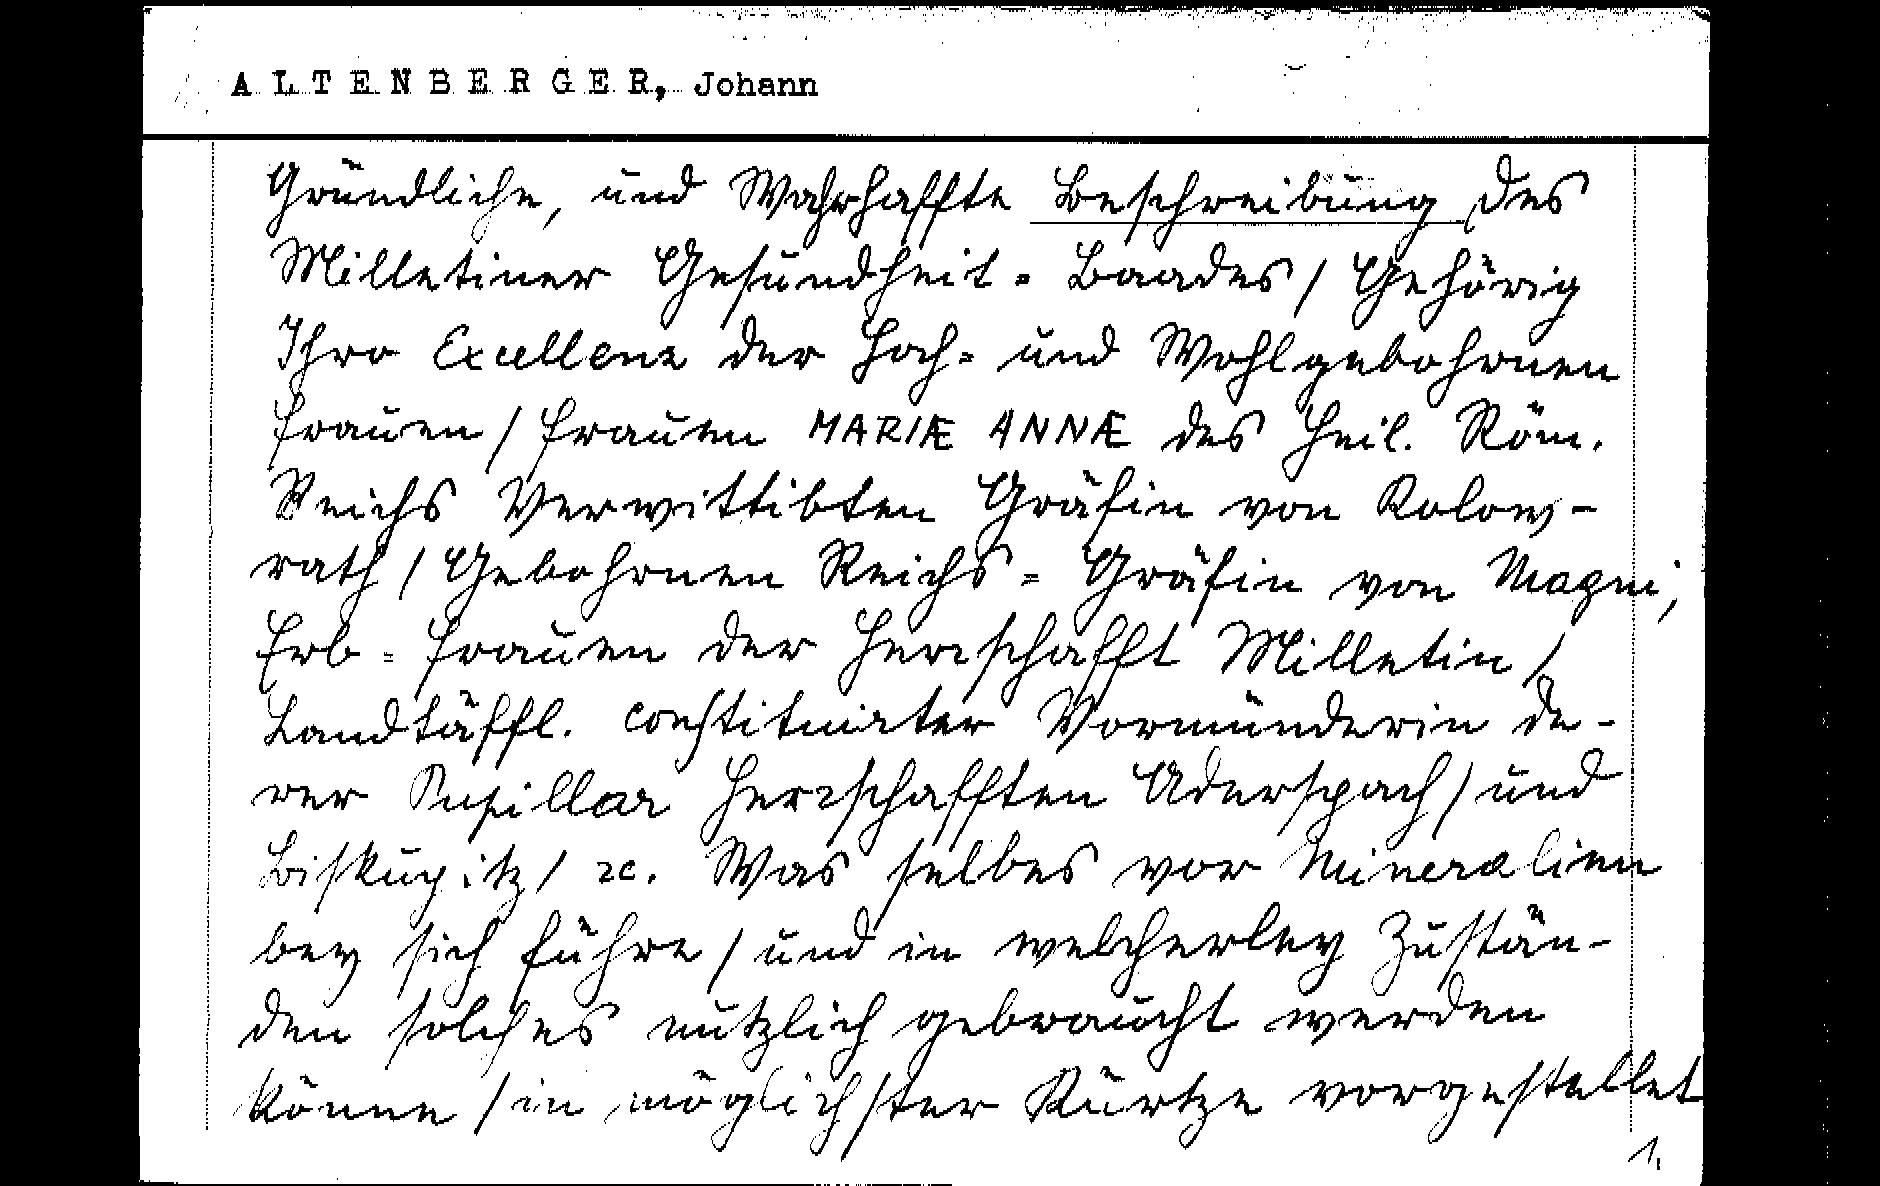 ALTENBERGER, Johann
Gründliche, und Wahrhaffte Beschreibung des
Milletiner Gesundheit-Baades / Gehörig
Ihro Excellenz der Hoch- und Wohlgebohrnen
Frauen / Frauen MARIÆ ANNÆ des Heil. Röm.
Reichs Verwittibten Gräfin von Kolow-
rath / Gebohrnen Reichs-Gräfin von Magni,
Erb-Frauen der Herrschafft Milletin /
Landtäffl. constituirter Vormünderin de-
rer Pupillar Herrschafften Aderspach / und
Biskupitz / ꝛc. Was selbes vor Mineralien
bey sich führe / und in welcherley Zustän-
den solches nutzlich gebraucht werden
könne / in möglichster Kürtze vorgestellet
1.